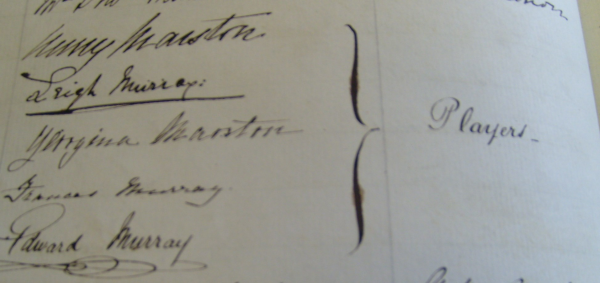 Henry Marston
Leigh Murray.
Georgina Marston
Frances Murray.
Edward Murray
Players